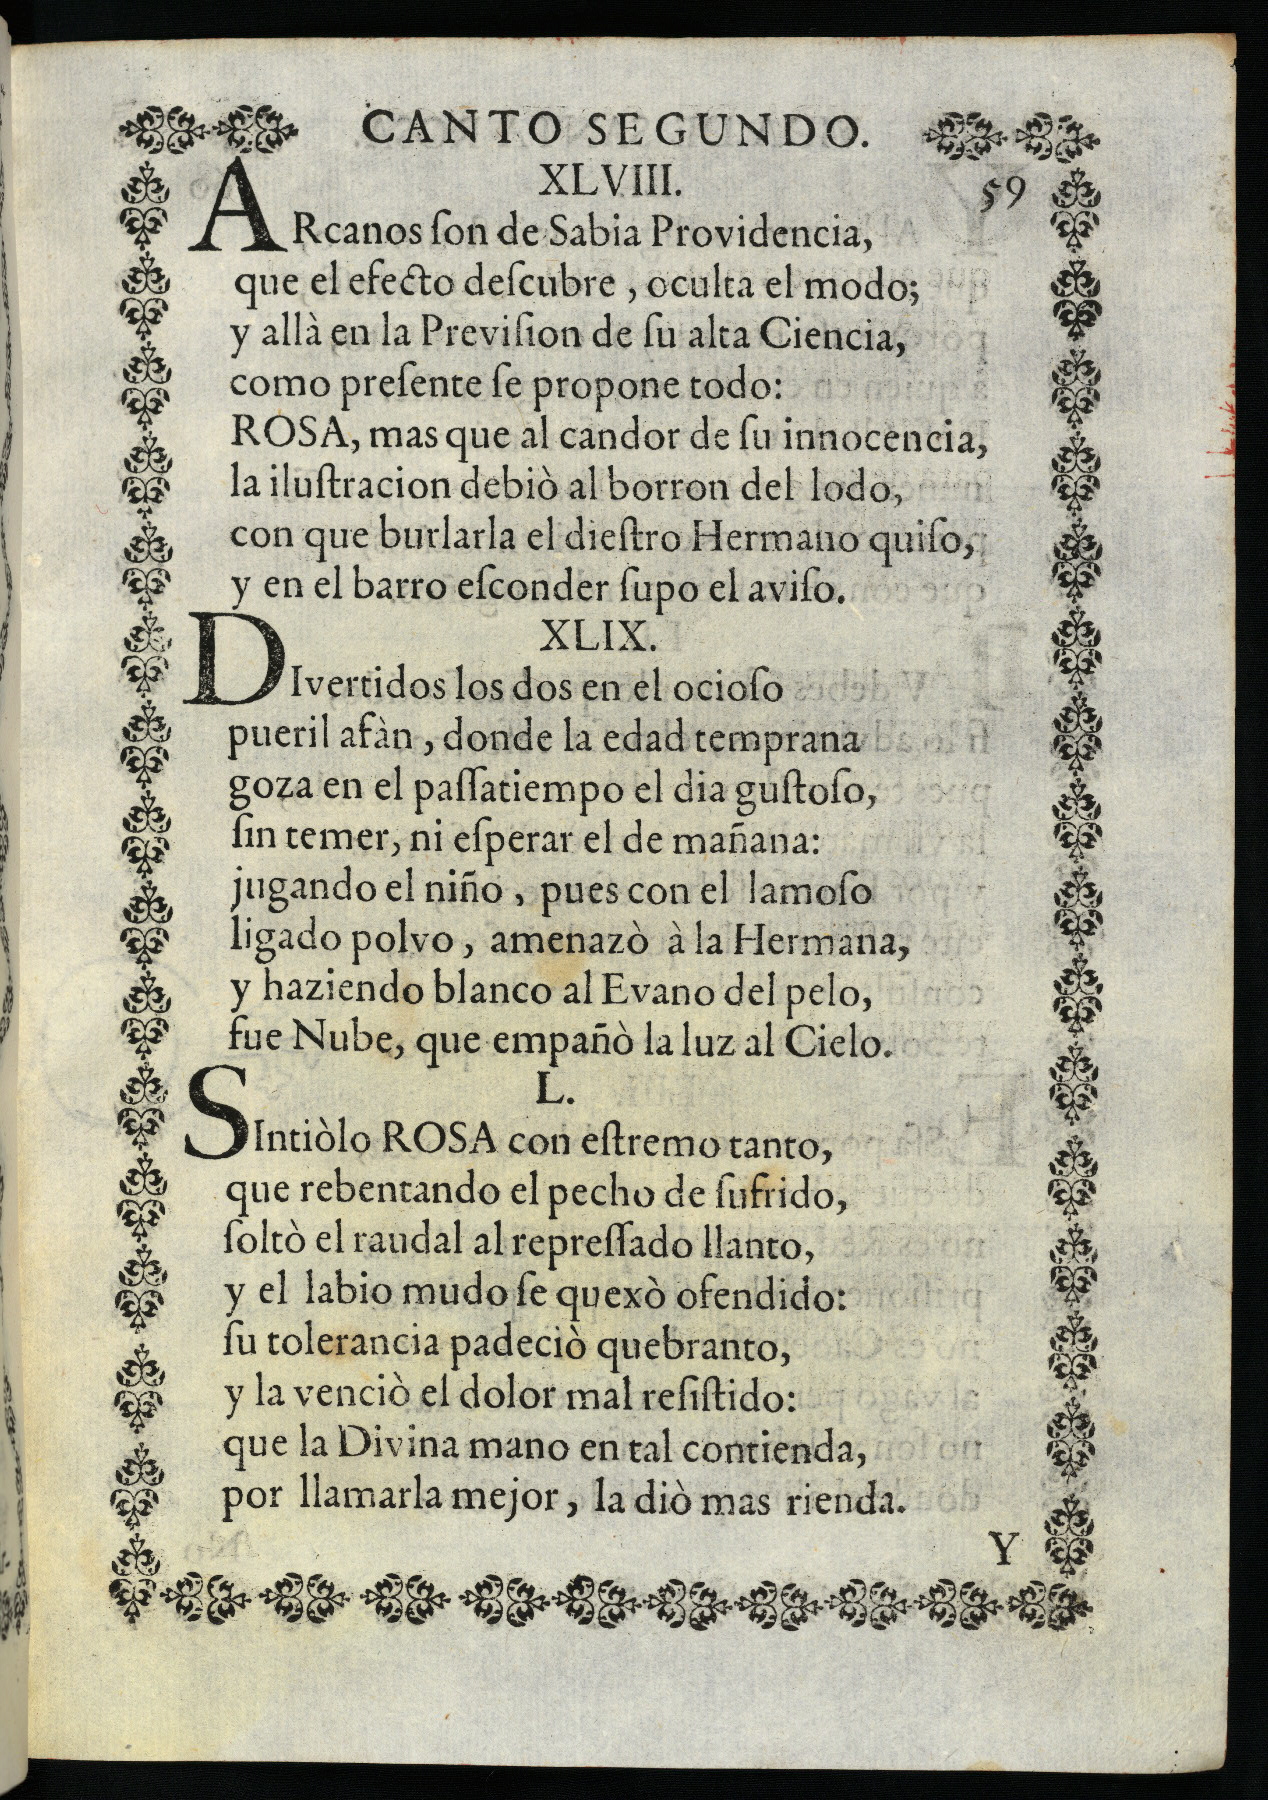 CANTO SEGUNDO.
XLVIII. 59
ARcanos ſon de Sabia Providencia,
que el efecto deſcubre, oculta el modo;
y allà en la Previſion de ſu alta Ciencia,
como preſente ſe propone todo:
ROSA, mas que al candor de ſu innocencia,
la iluſtracion debiò al borron del lodo,
con que burlarla el dieſtro Hermano quiſo,
y en el barro eſconder ſupo el aviſo.
XLIX.
DIvertidos los dos en el ocioſo
pueril afàn, donde la edad temprana
goza en el paſſatiempo el dia guſtoſo,
ſin temer, ni eſperar el de mañana:
jugando el niño, pues con el lamoſo
ligado polvo, amenazò à la Hermana,
y haziendo blanco al Evano del pelo,
fue Nube, que empañò la luz al Cielo.
L.
SIntiòlo ROSA con eſtremo tanto,
que rebentando el pecho de ſufrido,
ſoltò el raudal al repreſſado llanto,
y el labio mudo ſe quexò ofendido:
ſu tolerancia padeciò quebranto,
y la venciò el dolor mal reſiſtido:
que la Divina mano en tal contienda,
por llamarla mejor, la diò mas rienda.
Y